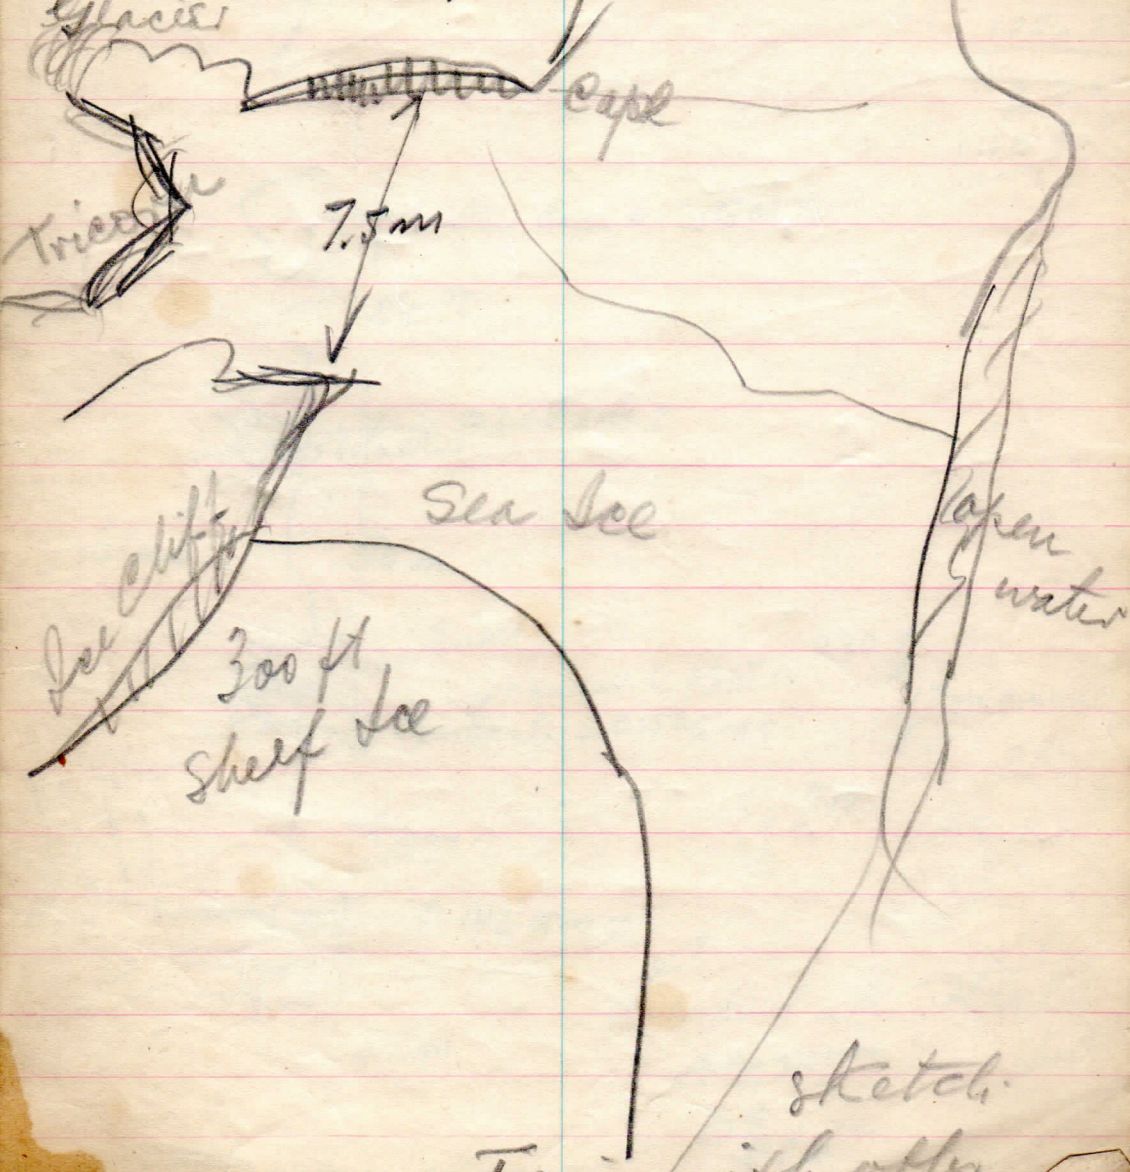 Glacier
Cape
Tricorn
7.5 m
Sea Ice
open
water
Ice Cliffs
300 ft
Shelf Ice
sketch
with other